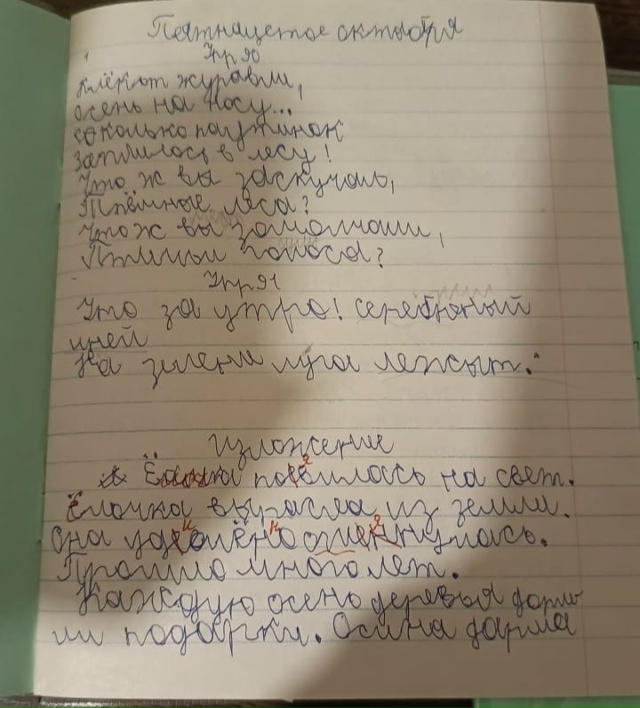 Пятнацетое октября
Упр 90
Клёкот журавли,
осень на носу...
сколько паутинок
заплилось в лесу!
Что ж вы заскучали,
Тпёмные леса?
Что ж вы замолчали,
Птичьи голоса?
Упр 91
Что за утро! серебряный
иней
На зелени луга лежыт.
изложение
Ёлочка появилась на свет.
Ёлочка вырасла из земли.
Она
Прошло много лет.
Каждую осень деревья дари
ли подарки. Осина дарила